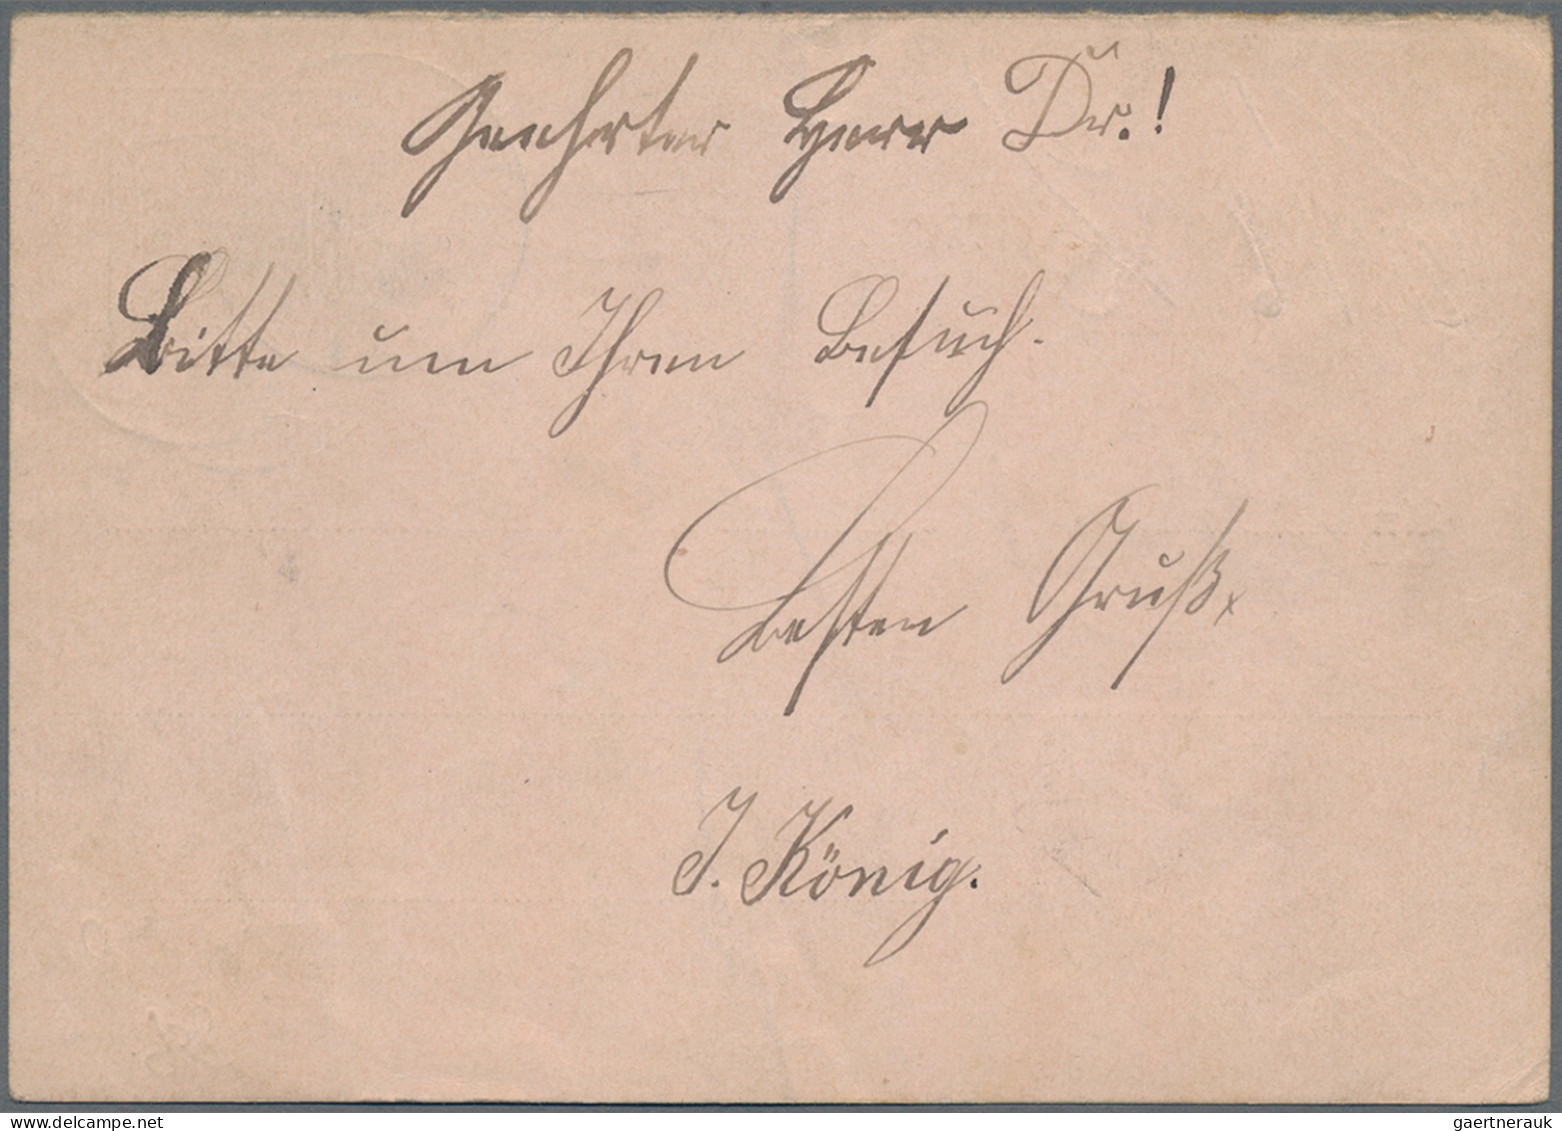 Geehrter Herr Dr.!
Bitte um Ihren Besuch.
Besten Gruß,
J. König.
gaertnerauk